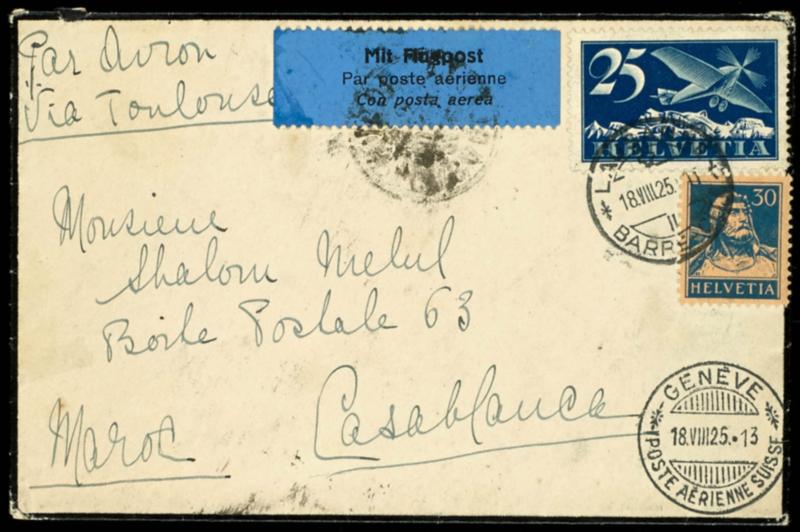 Par Avion
Via Toulouse
Mit Flugpost
Par poste aérienne
Con posta aerea
25
HELVETIA
18.VIII.25.
BARRE
30
HELVETIA
Monsieur
Shalom Melul
Boite Postale 63
Casablanca
Maroc
GENÈVE
18.VIII25.-13
POSTE AÉRIENNE SUISSE